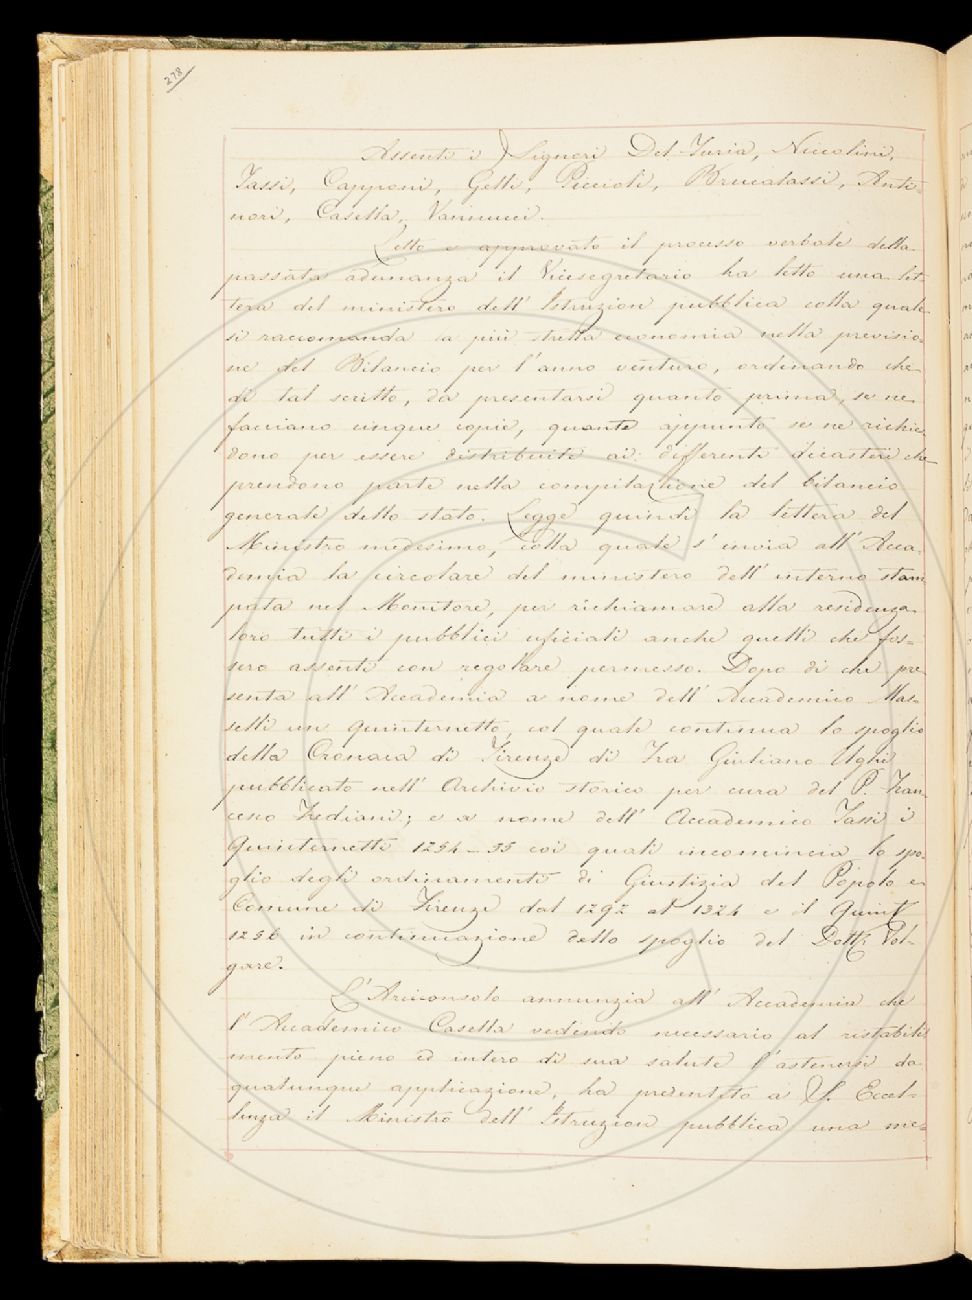 278
Assenti i Signori Del-Furia, Niccolini,
Tassi, Capponi, Gelli, Piccioli, Brucalassi, Anti-
nori, Casella, Vannucci.
Letto e approvato il processo verbale della
passata adunanza il Vicesegretario ha letto una let-
tera del ministero dell' Istruzion pubblica colla quale
si raccomanda la più stretta economia nella previsio-
ne del Bilancio per l'anno venturo, ordinando che
di tal scritto, da presentarsi quanto prima, se ne
facciano cinque copie, quante appunto se ne richie-
dono per essere distribuite ai differenti dicasteri che
prendono parte nella compilazione del bilancio
generale dello stato. Legge quindi la lettera del
Ministro medesimo, colla quale s' invia all' Acca-
demia la circolare del ministero dell' interno stam
pata nel Monitore, per richiamare alla residenza
loro tutti i pubblici uficiali anche quelli che fos-
sero assenti con regolare permesso. Dopo di che pre
senta all' Accademia a nome dell' Accademico Mas-
selli un quinternetto, col quale continua lo spoglio
della Cronaca di Firenze di Fra Giuliano Ughi
pubblicato nell' Archivio storico per cura del P. Fran
cesco Frediani; e a nome dell' Accademico Tassi i
Quinternetti 1254-55 coi quali incomincia lo spo-
glio degli ordinamenti di Giustizia del Popolo e
Comune di Firenze dal 1292 al 1324 e il Quint.
1256 in continuazione dello spoglio del Dott. Vol-
gare.
L'Arciconsolo annunzia all' Accademia che
l' Accademico Casella vedendo necessario al ristabili
mento pieno ed intero di sua salute l'astenersi da
qualunque applicazione, ha presentato a S. Eccel-
lenza il Ministro dell' Istruzion pubblica una me-